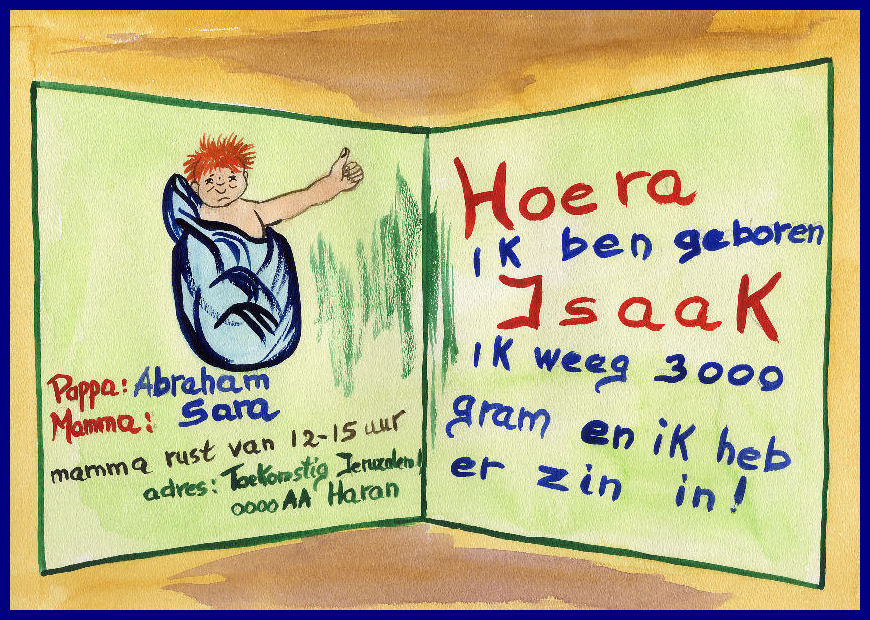 Pappa: Abraham
Mamma: Sara
mamma rust van 12-15 uur
adres: Toekomstig Jeruzalem!
0000 AA Haran
Hoera
ik ben geboren
Isaak
ik weeg 3000
gram en ik heb
er zin in!